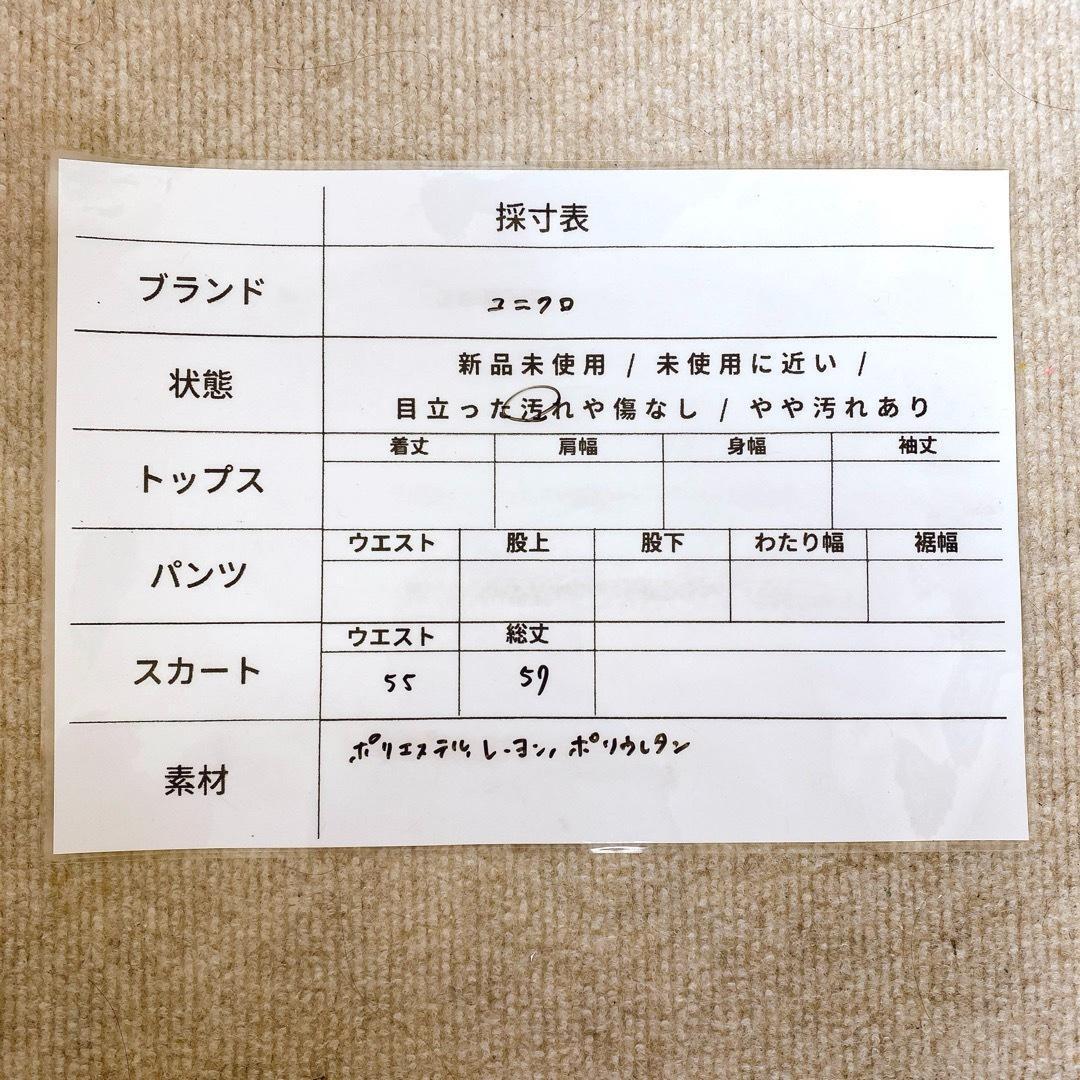 採寸表
ブランド
ユニクロ
状態
新品未使用 / 未使用に近い /
目立った汚れや傷なし / やや汚れあり
トップス
着丈 肩幅 身幅 袖丈
パンツ
ウエスト 股上 股下 わたり幅 裾幅
スカート
ウエスト 総丈
55 57
素材
ポリエステル, レーヨン, ポリウレタン